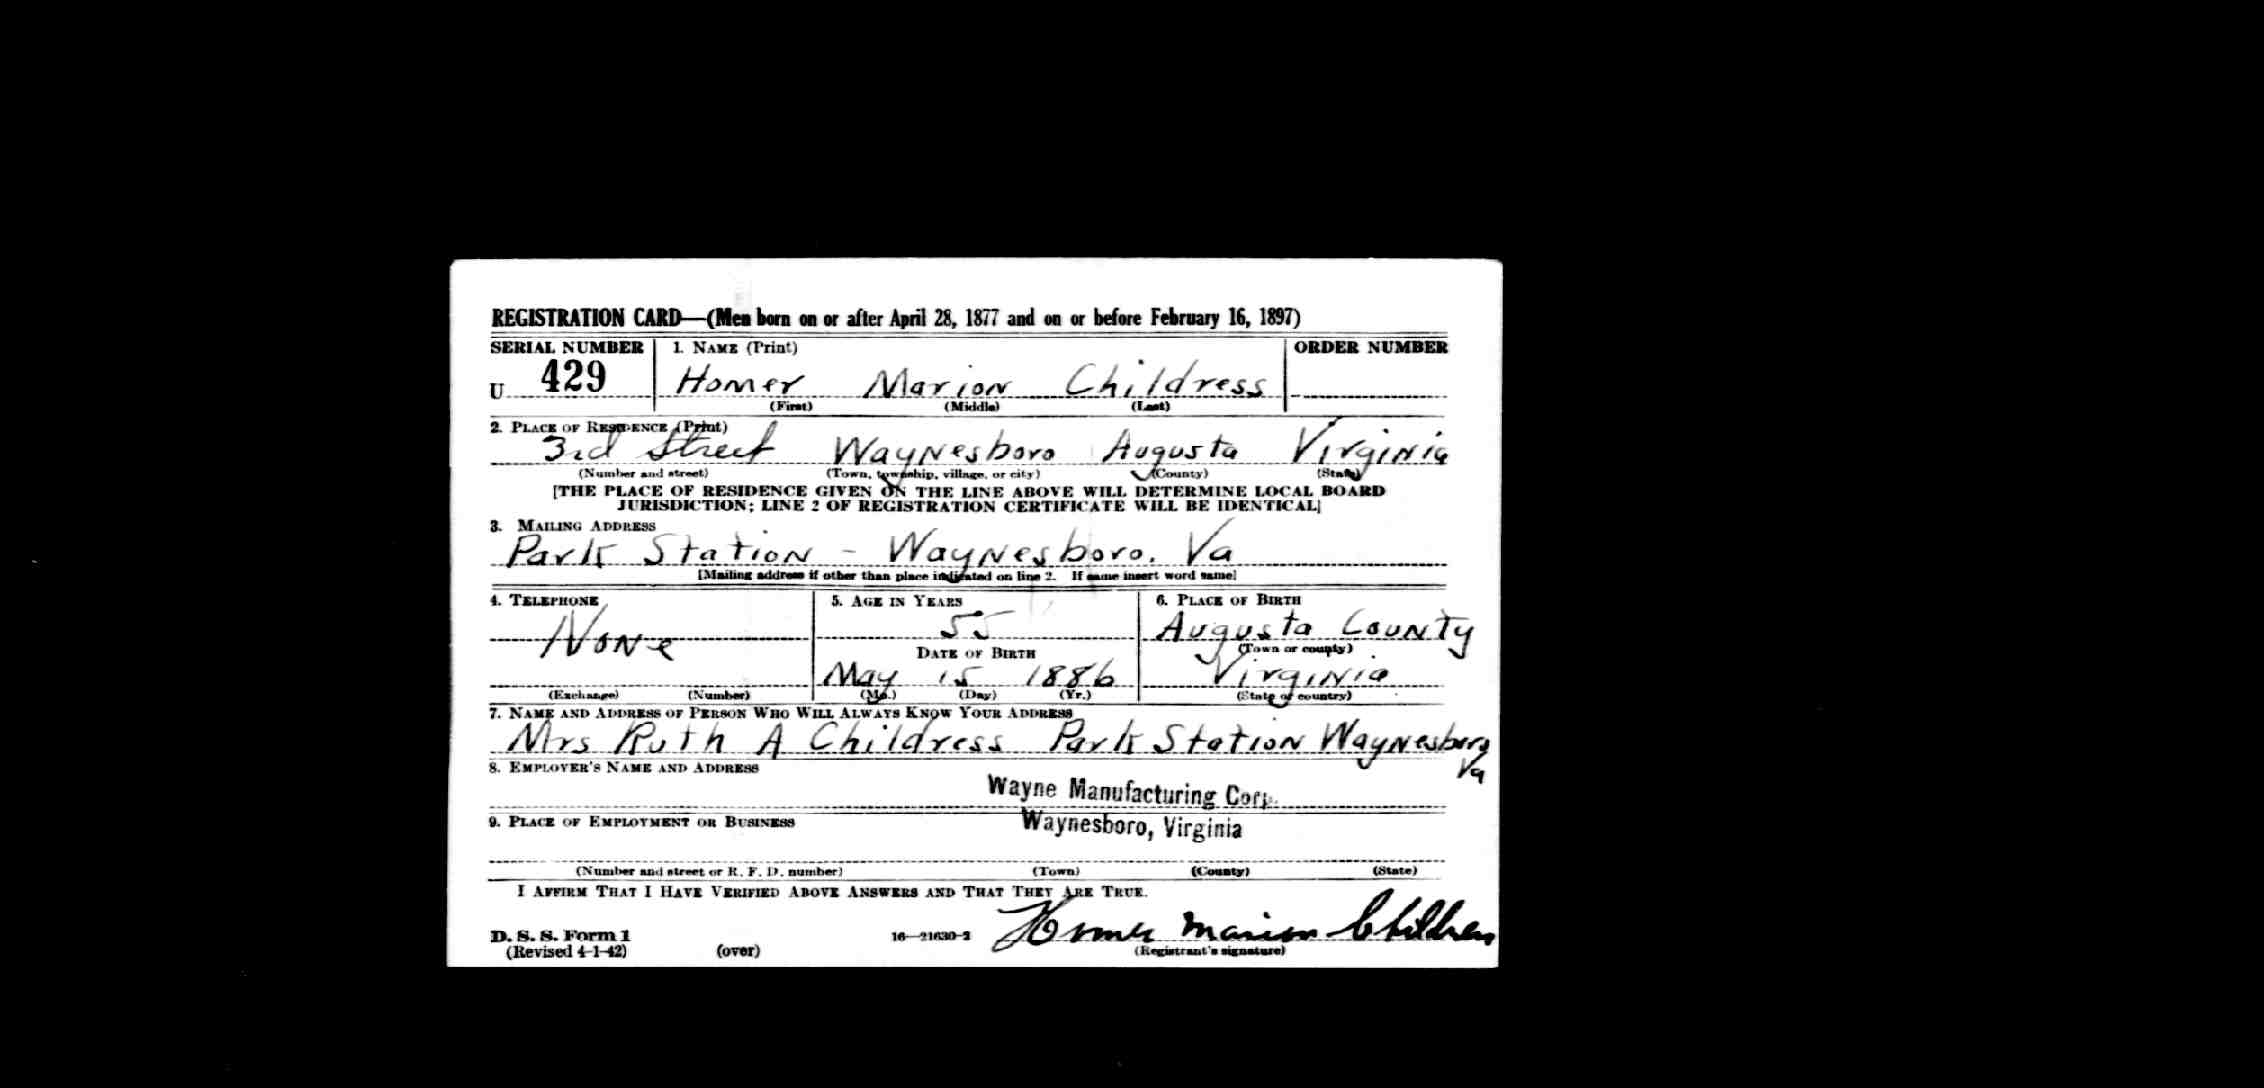 REGISTRATION CARD—(Men born on or after April 28, 1877 and on or before February 16, 1897)
SERIAL NUMBER 1. NAME (Print) ORDER NUMBER
U 429 Homer Marion Childress
(First) (Middle) (Last)
2. PLACE OF RESIDENCE (Print)
3rd Street Waynesboro Augusta Virginia
(Number and street) (Town, township, village, or city) (County) (State)
[THE PLACE OF RESIDENCE GIVEN ON THE LINE ABOVE WILL DETERMINE LOCAL BOARD
JURISDICTION; LINE 2 OF REGISTRATION CERTIFICATE WILL BE IDENTICAL]
3. MAILING ADDRESS
Park Station - Waynesboro. Va
[Mailing address if other than place indicated on line 2. If same insert word same]
4. TELEPHONE 5. AGE IN YEARS 6. PLACE OF BIRTH
None 55 Augusta County
DATE OF BIRTH (Town or county)
May 15 1886 Virginia
(Exchange) (Number) (Mo.) (Day) (Yr.) (State or country)
7. NAME AND ADDRESS OF PERSON WHO WILL ALWAYS KNOW YOUR ADDRESS
Mrs Ruth A Childress Park Station Waynesboro
Va
8. EMPLOYER'S NAME AND ADDRESS
Wayne Manufacturing Corp.
9. PLACE OF EMPLOYMENT OR BUSINESS
Waynesboro, Virginia
(Number and street or R. F. D. number) (Town) (County) (State)
I AFFIRM THAT I HAVE VERIFIED ABOVE ANSWERS AND THAT THEY ARE TRUE.
Homer Marion Childress
D. S. S. Form 1 16—21630-2
(Revised 4-1-42) (over) (Registrant's signature)